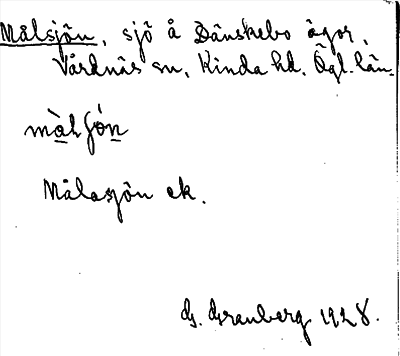 Målsjön, sjö å Dänskebo ägor,
Vårdnäs sn, Kinda hd. Ögl. län.
mὰlʃón
Målasjön ek.
G. Granberg 1928.